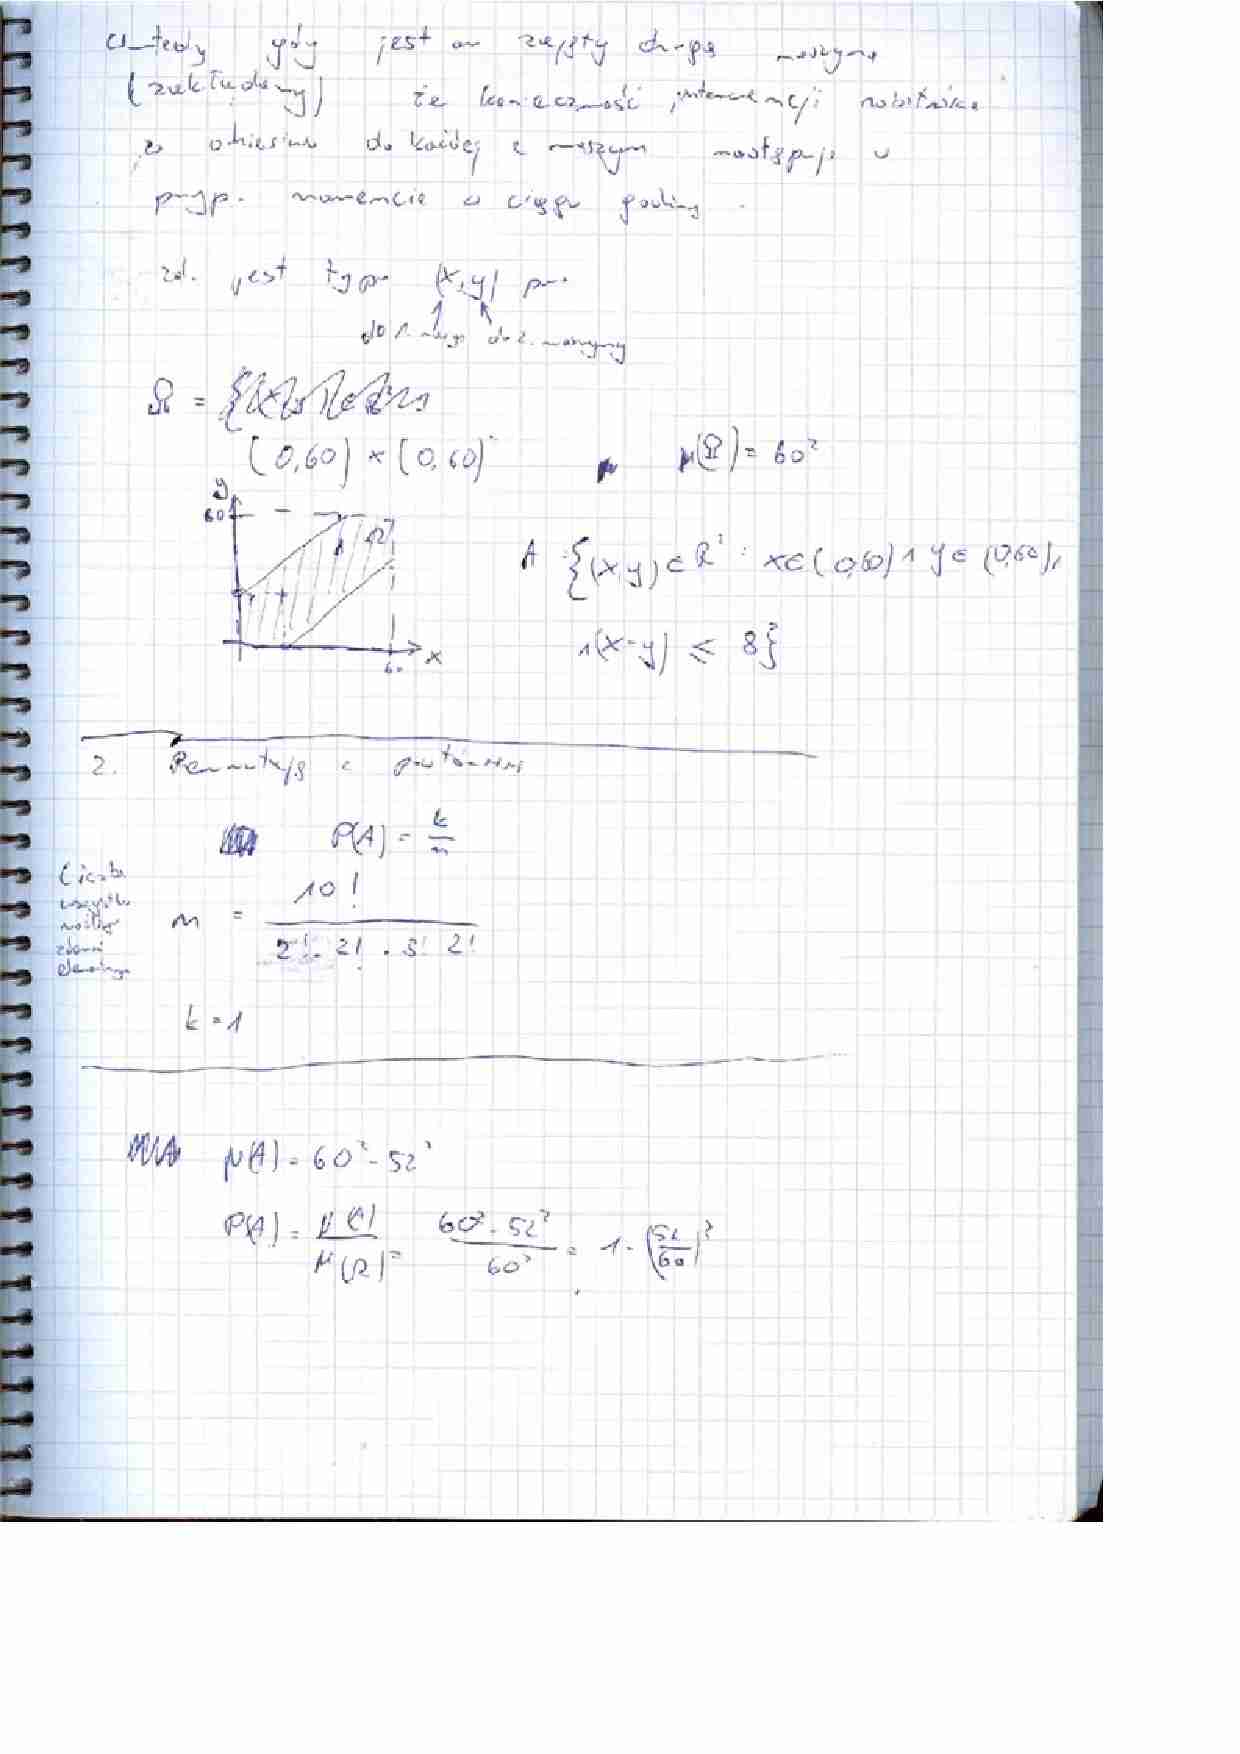 wtedy gdy jest on zajęty drugą maszyną
(zakładamy) że konieczność interwencji robotnika
w odniesieniu do każdej z maszyn następuje w
przyp. momencie w ciągu godziny.
zd. jest typu (x,y)
do 1. masz do 2. maszyny
Ω =
(0,60) × (0,60)
μ(Ω) = 60²
y
60
A
Ω
x
60
A {(x,y) ∈ R² : x∈(0,60) ∧ y∈(0,60) ∧
∧ |x-y| ≤ 8}
2. Permutacje z powtórzeniami
P(A) = k/n
Liczba
wszystkich
możliwych
zdarzeń
elementarnych
n = 10! / 2! · 2! · 3! 2!
k = 1
μ(A) = 60² - 52²
P(A) = μ(A) / μ(Ω) = 60² - 52² / 60² = 1 - (52/60)²